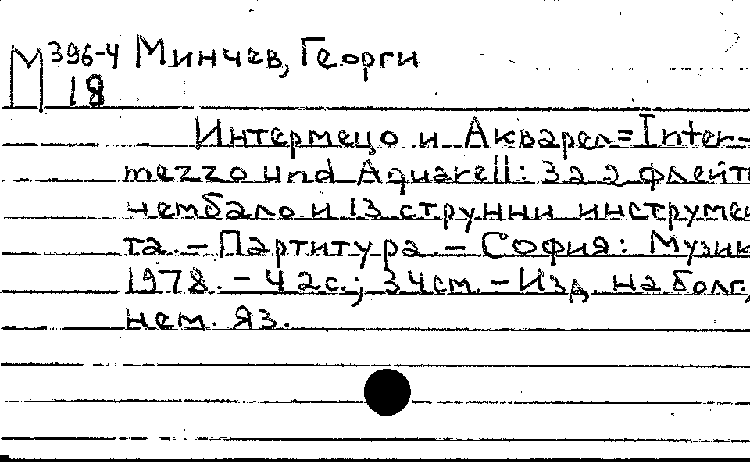 М 396-4 Минчев, Георги
18
Интермецо и Акварел=Inter-
mezzo und Aquarell: За 2 флейт
чембало и 13 струнни инструмен
та. – Партитура. – София: Музик
1978. – 42с.; 34см. – Изд. на болг.,
нем. яз.